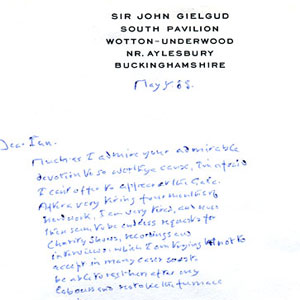 SIR JOHN GIELGUD
SOUTH PAVILION
WOTTON-UNDERWOOD
NR. AYLESBURY
BUCKINGHAMSHIRE
May 88.
Dear Ian.
Much as I admire your admirable
devotion to so worthy a cause, I'm afraid
I can't offer to appear at the Gala.
After a very tiring four months
I am very tired, and
there seem to be endless requests for
Charity Shows, recordings and
interviews which I am trying not to
accept in many cases so as to
be able to rest after my
labours and not take the